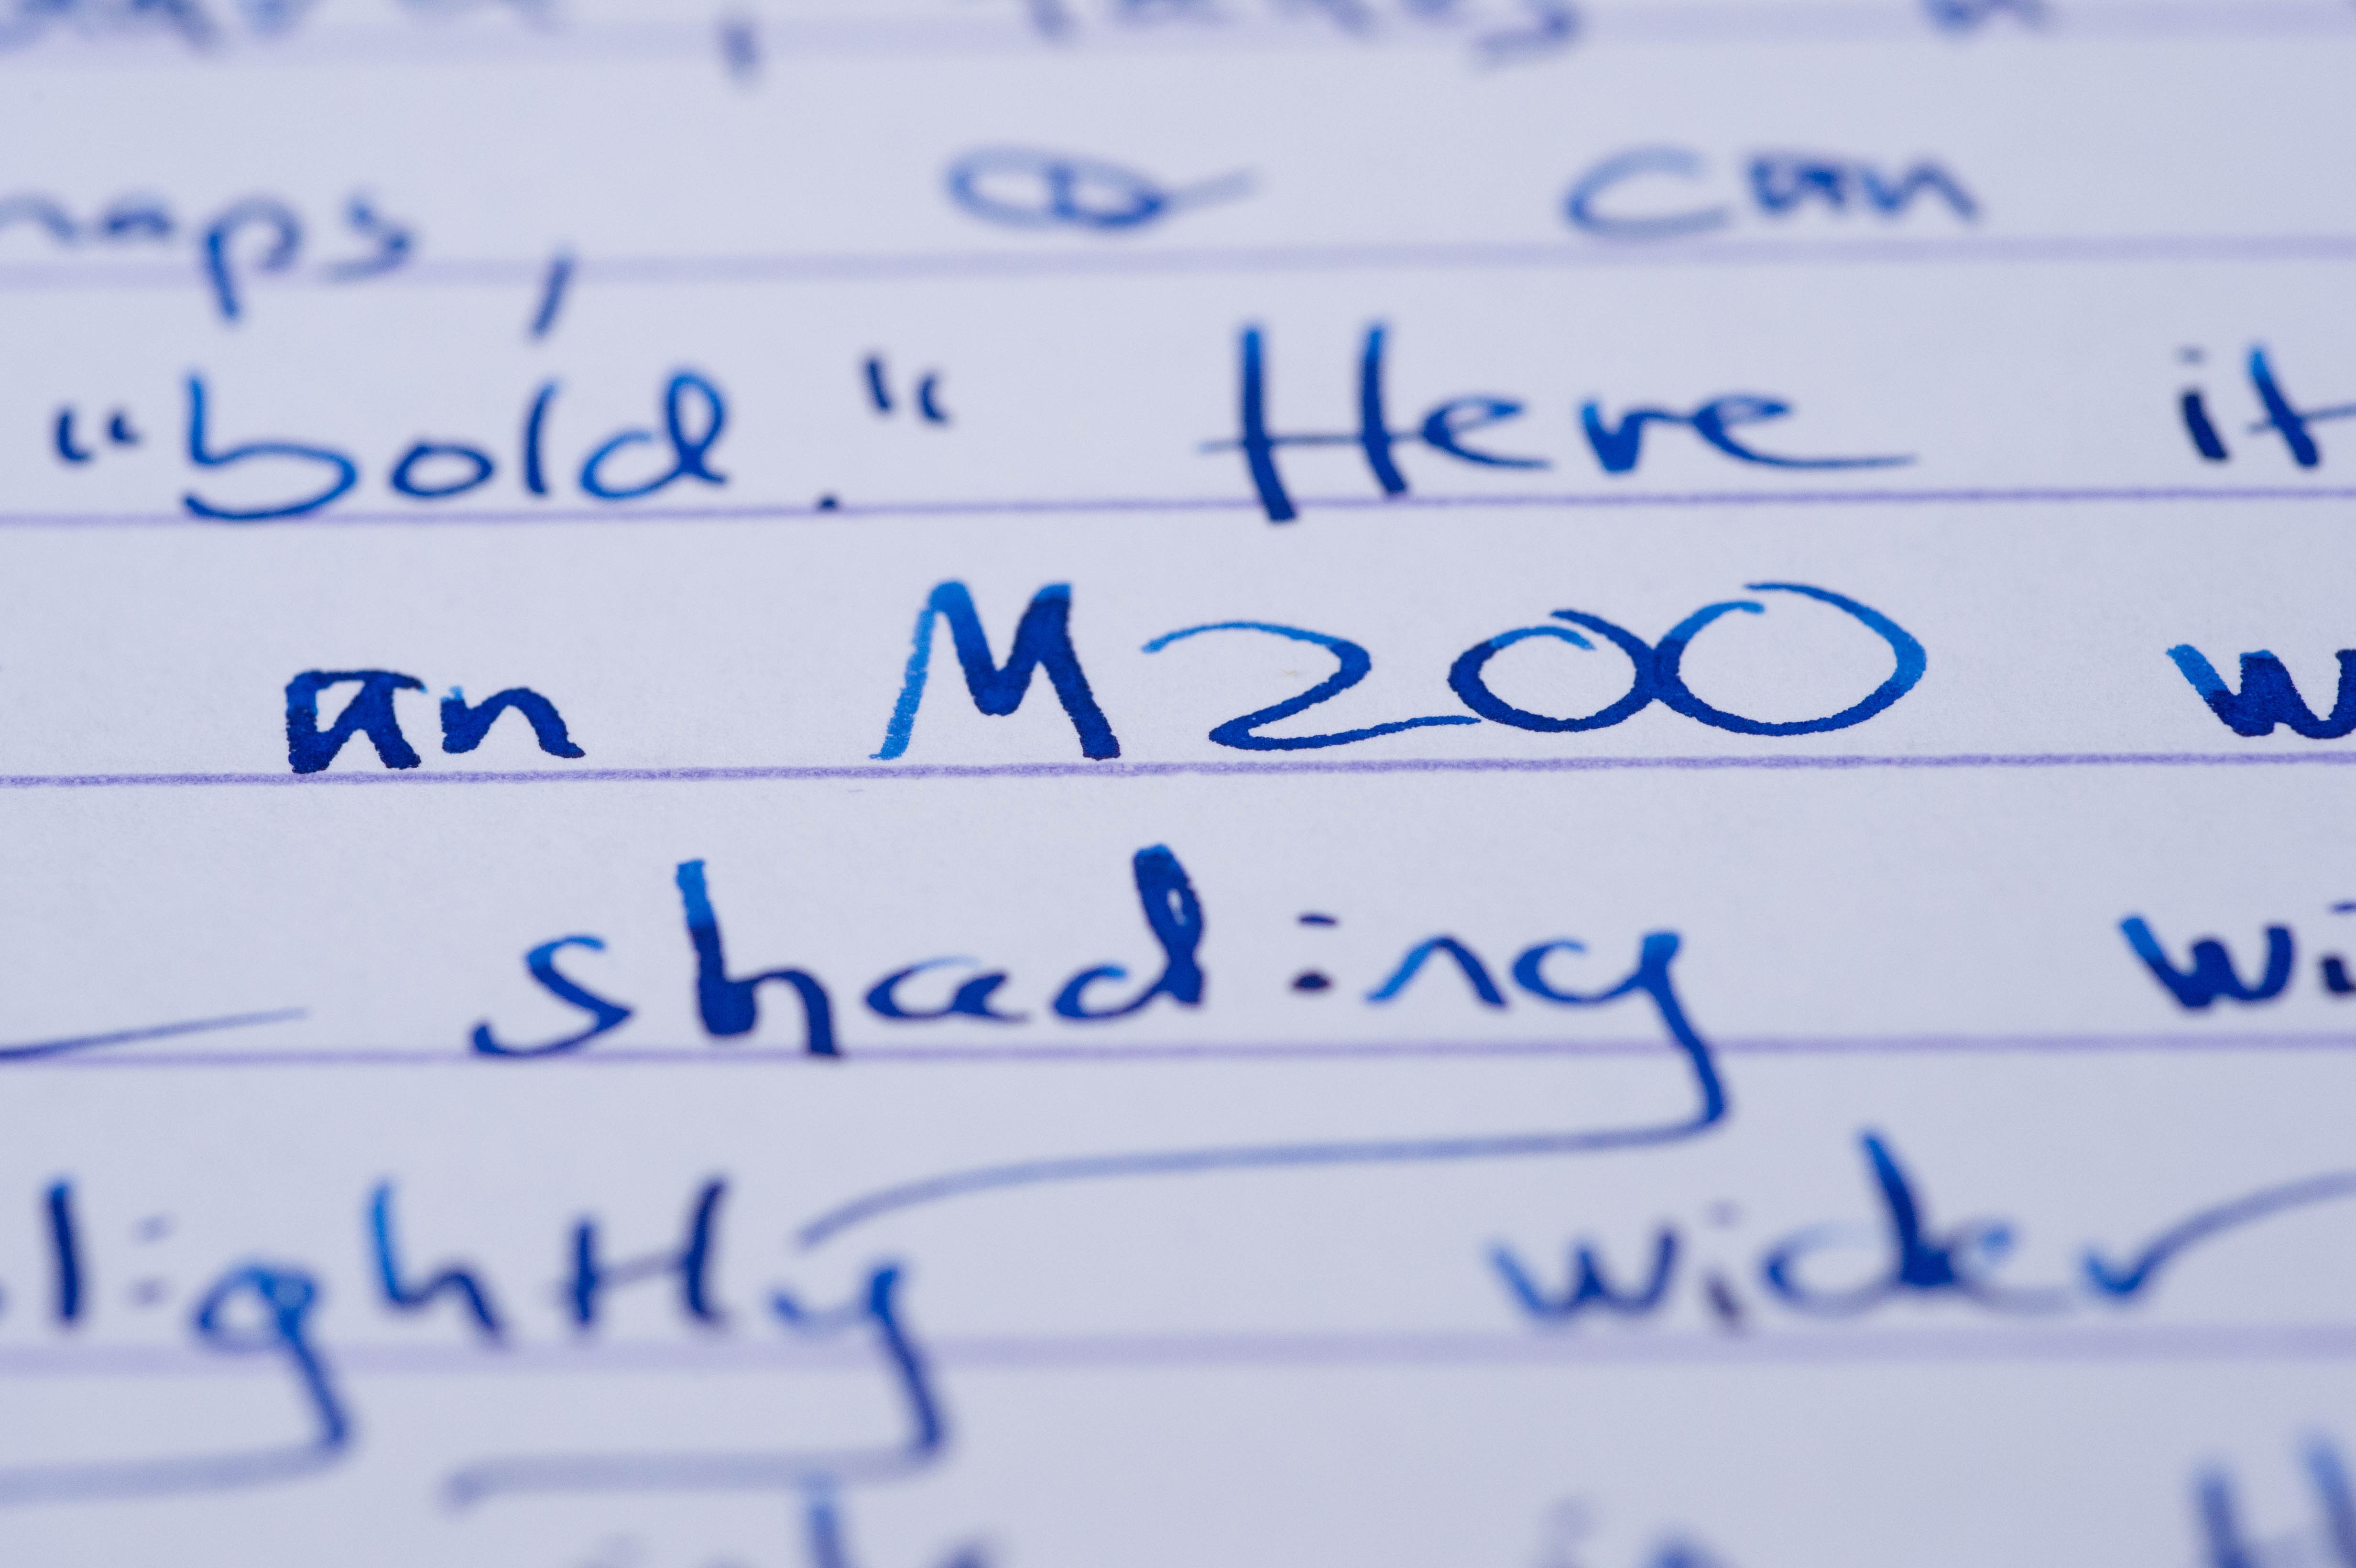 a can
"bold." Here it
an M200
shading
lightly wider
in